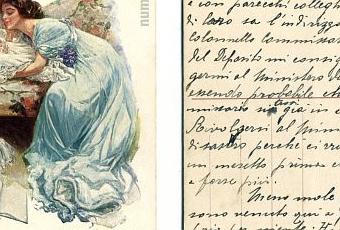 e con parecchi collegh
di loro sa l'indirizzo
Colonnello Commissar
del Deposito mi consig
germi al Ministero de
essendo probabile ch
già in
Rivolgersi al Minis
perchè ci vr
un mesetto prima e
e forse più.
Meno male
sono venuto qui a
num